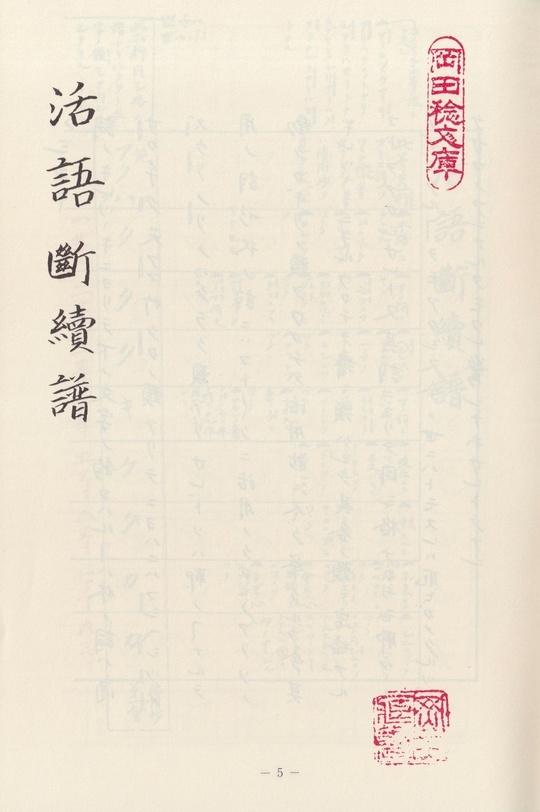 岡田稔文庫
活語斷續譜
— 5 —